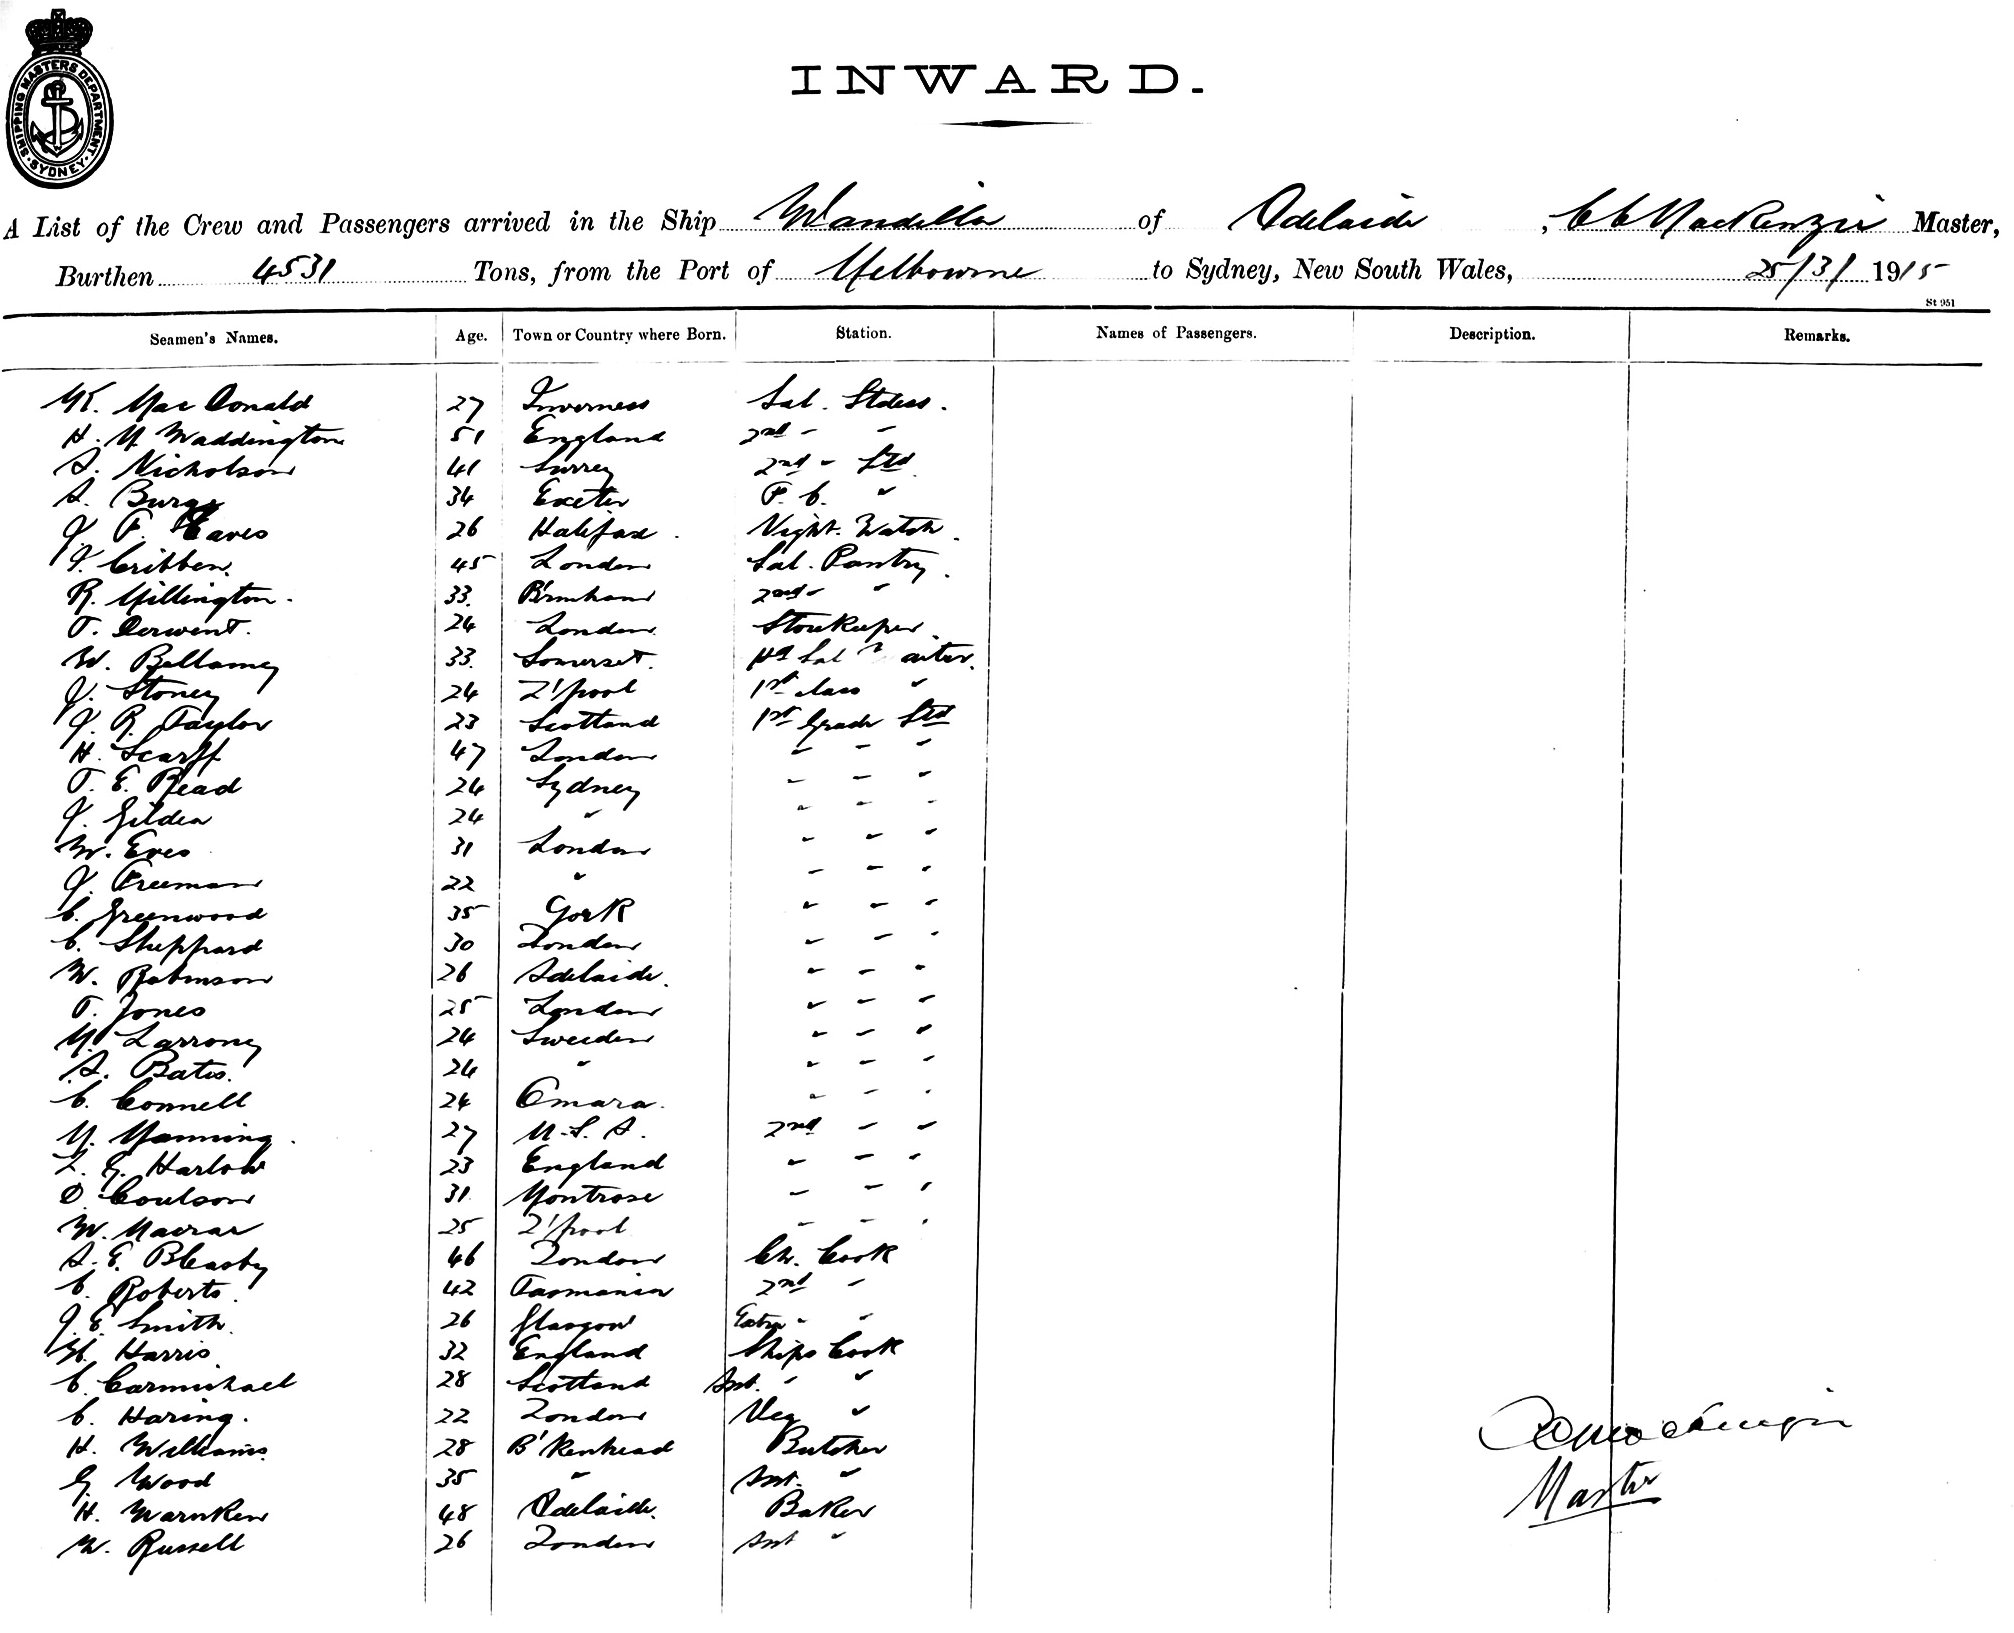 SHIPPING MASTERS DEPARTMENT · SYDNEY ·
INWARD.
A List of the Crew and Passengers arrived in the Ship Wandilla of Adelaide, C C MacKenzie Master,
Burthen 4531 Tons, from the Port of Melbourne to Sydney, New South Wales, 25/3/1915
St 951
Seamen's Names. Age. Town or Country where Born. Station. Names of Passengers. Description. Remarks.
K. Mac Donald 27 Inverness Sal. Stdess.
H. M Waddington 51 England 2nd " "
A. Nicholson 41 Surrey 2nd " Std
A. Burge 34 Exeter P. C. "
J. F. Eaves 26 Halifax. Night. Watch.
J. Cribben. 45 London Sal. Pantry.
R. Millington. 33. B'rmham 2nd " "
T. Derwent. 24 London. Storekeeper.
W. Bellamy 33. Somerset. Hd Sal Waiter.
J. Stoney 24 L'pool 1st class "
J. R. Taylor 23 Scotland 1st Grade Std
H. Scarff 47 London " " "
T. E. Read 24 Sydney " " "
J. Gilden 24 " " " "
W. Eves 31 London " " "
J. Freeman 22 " " " "
C. Greenwood 35 York " " "
C. Sheppard 30 London " " "
W. Robinson 26 Adelaide. " " "
T. Jones 25 London " " "
M. Larrony 24 Sweeden " " "
A. Bates. 24 " " " "
C. Connell 24 Omara. " " "
M. Manning. 27 U.S.A. 2nd " "
L. G. Harlow 23 England " " "
D Coulson 31 Montrose " " "
W. Macrae 25 L'pool " " "
A. E. Bleasby 46 London Ch. Cook
C. Roberts. 42 Tasmania 2nd "
J. E Smith. 26 Glasgow Extra " "
H. Harris 32 England Ships Cook
C. Carmichael 28 Scotland Asst. " "
C. Haring. 22 London Veg "
H. Williams. 28 B'kenhead Butcher
G. Wood 35 " Asst. "
H. Warnken 48 Adelaide. Baker
W. Russell 26 London Asst "
Master